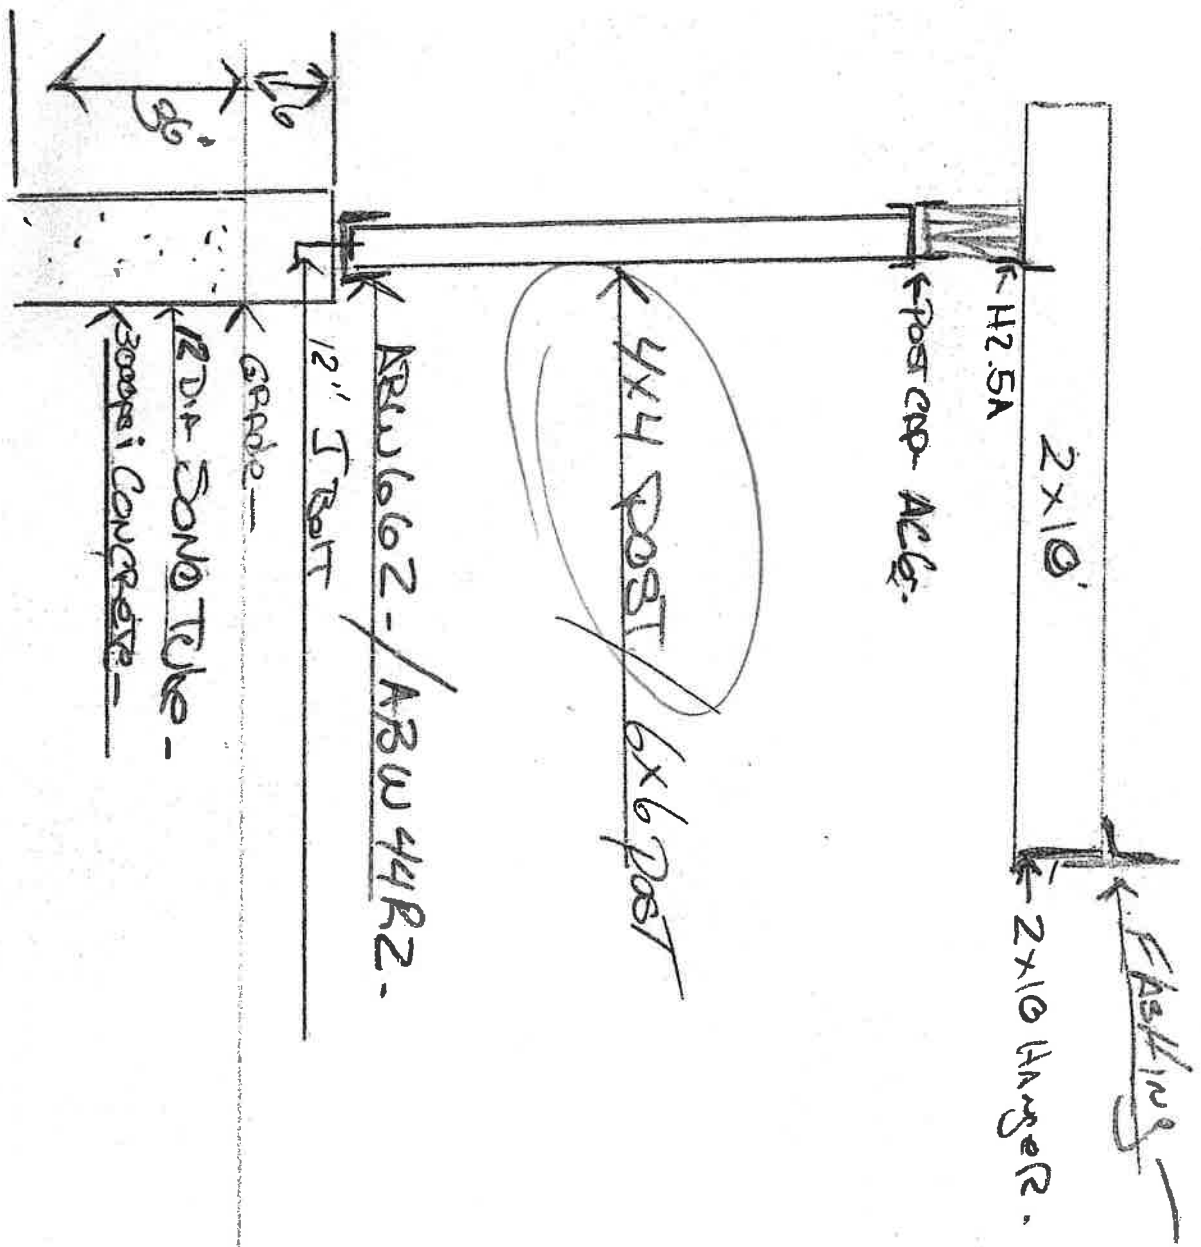 FLASHING
2x10 HANGER.
2x10
H2.5A
POST CAP AC6.
4x4 POST / 6x6 POST
ABW66Z - / ABW44RZ -
12" J BOLT
GRADE -
12 DIA SONO TUBE -
3000psi CONCRETE -
6
36"